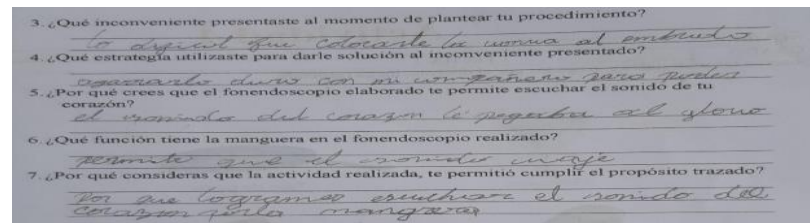 3. ¿Qué inconveniente presentaste al momento de plantear tu procedimiento?
lo dificil fue colocarle la al embudo
4. ¿Qué estrategia utilizaste para darle solución al inconveniente presentado?
agarrarlo duro con mi compañero para poder
5. ¿Por qué crees que el fonendoscopio elaborado te permite escuchar el sonido de tu
corazón?
el sonido del corazon le pegaba al globo
6. ¿Qué función tiene la manguera en el fonendoscopio realizado?
permite que el sonido viaje
7. ¿Por qué consideras que la actividad realizada, te permitió cumplir el propósito trazado?
Por que logramos escuchar el sonido del
corazon por la manguera